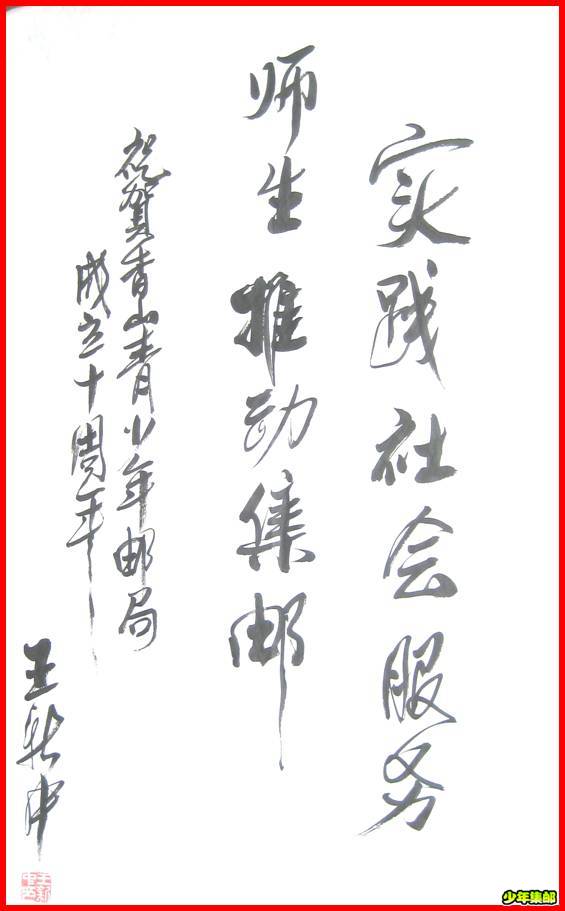 实践社会服务
师生推动集邮
祝贺香山青少年邮局
成立十周年
王新中
少年集邮